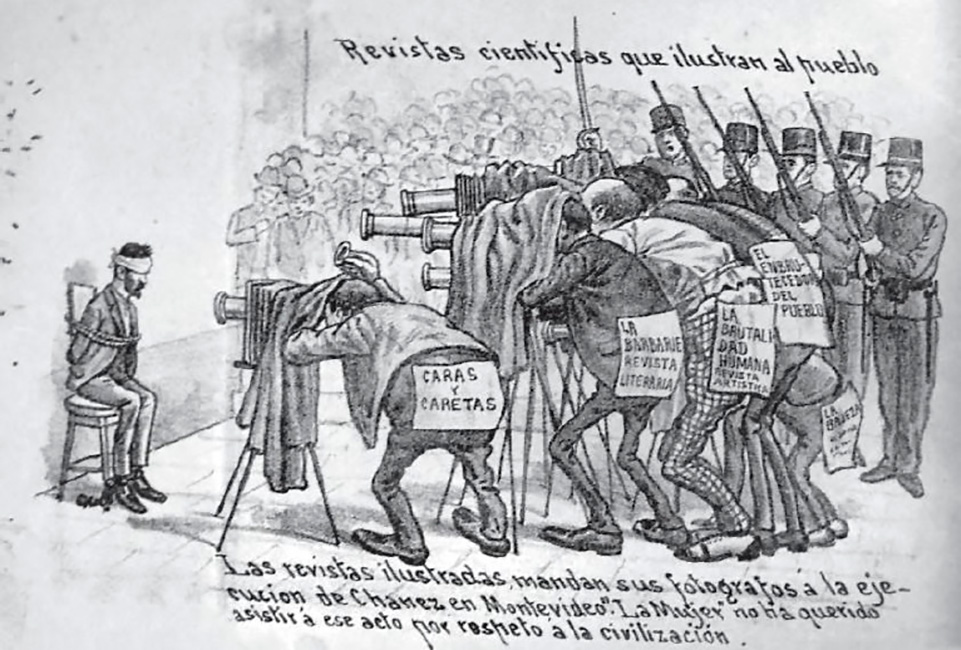 Revistas cientificas que ilustran al pueblo
CARAS
Y
CARETAS
LA
BARBARIE
REVISTA
LITERARIA
LA
BRUTALI
DAD
HUMANA
REVISTA
ARTISTICA
EL
ENBRU-
TECEDOR
DEL
PUEBLO
LA
Las revistas ilustradas, mandan sus fotografos á la eje-
cucion de Chánez en Montevideo". "La Mujer" no ha querido
asistir á ese acto por respeto á la civilización.